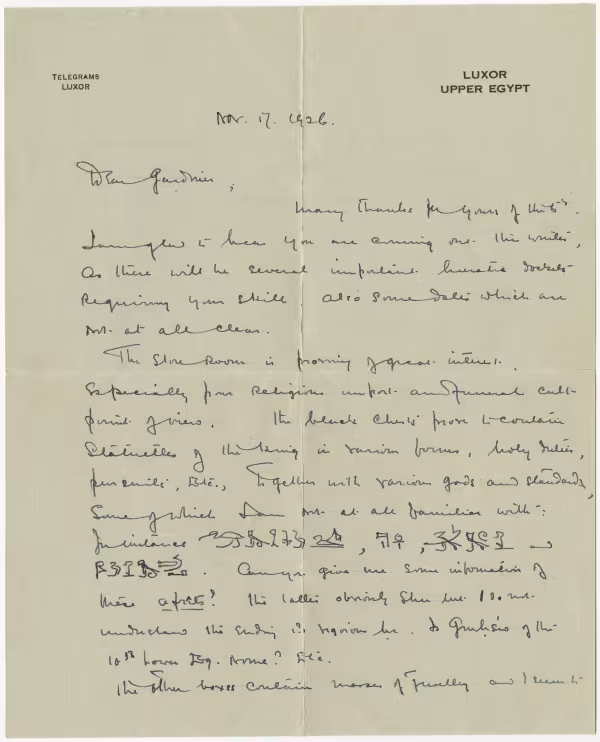 TELEGRAMS
LUXOR
LUXOR
UPPER EGYPT
Nov. 17. 1926.
Dear Gardiner,
Many thanks for yours of the
I am glad to hear you are coming out this winter,
as there will be several important hieratic dockets
requiring your skill. Also some dates which are
not at all clear.
The Store Room is proving of great interest.
Especially from religious import and funeral cult
point of view. The black chests prove to contain
statuettes of the king in various forms, holy
Etc., together with various gods and standards,
some of which I am not at all familiar with:
For instance
Can you give me some information of
these ? The latter obviously but I do not
understand the ending
10th Lower Eg. Nome? Etc.
The other boxes contain masses of jewellry and I seem to